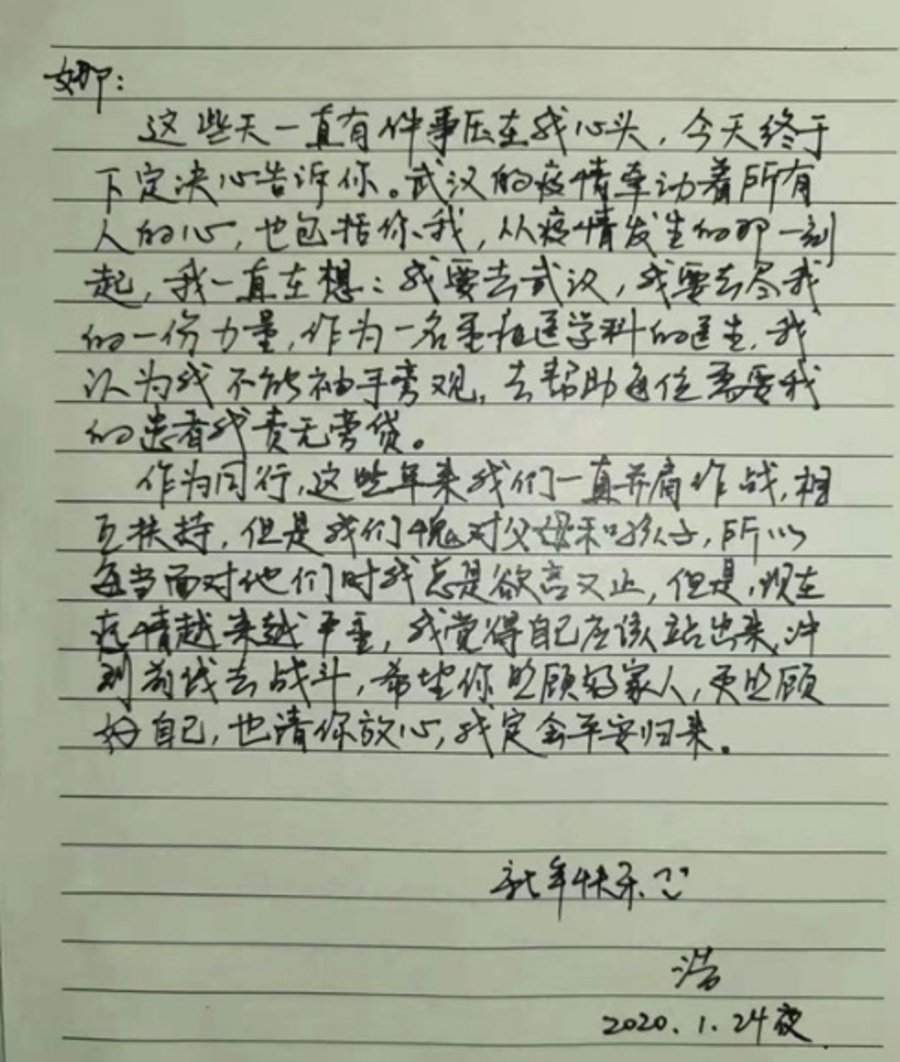 娜：
这些天一直有件事压在我心头，今天终于
下定决心告诉你。武汉的疫情牵动着所有
人的心，也包括你、我，从疫情发生的那一刻
起，我一直在想：我要去武汉，我要去尽我
的一份力量，作为一名重症医学科的医生，我
认为我不能袖手旁观，去帮助每位需要我
的患者我责无旁贷。
作为同行，这些年来我们一直并肩作战，相
互扶持，但是我们愧对父母和孩子，所以
每当面对他们时我总是欲言又止，但是，现在
疫情越来越严重，我觉得自己应该站出来，冲
到前线去战斗，希望你照顾好家人，更照顾
好自己，也请你放心，我定会平安归来。
新年快乐
浩
2020.1.24夜